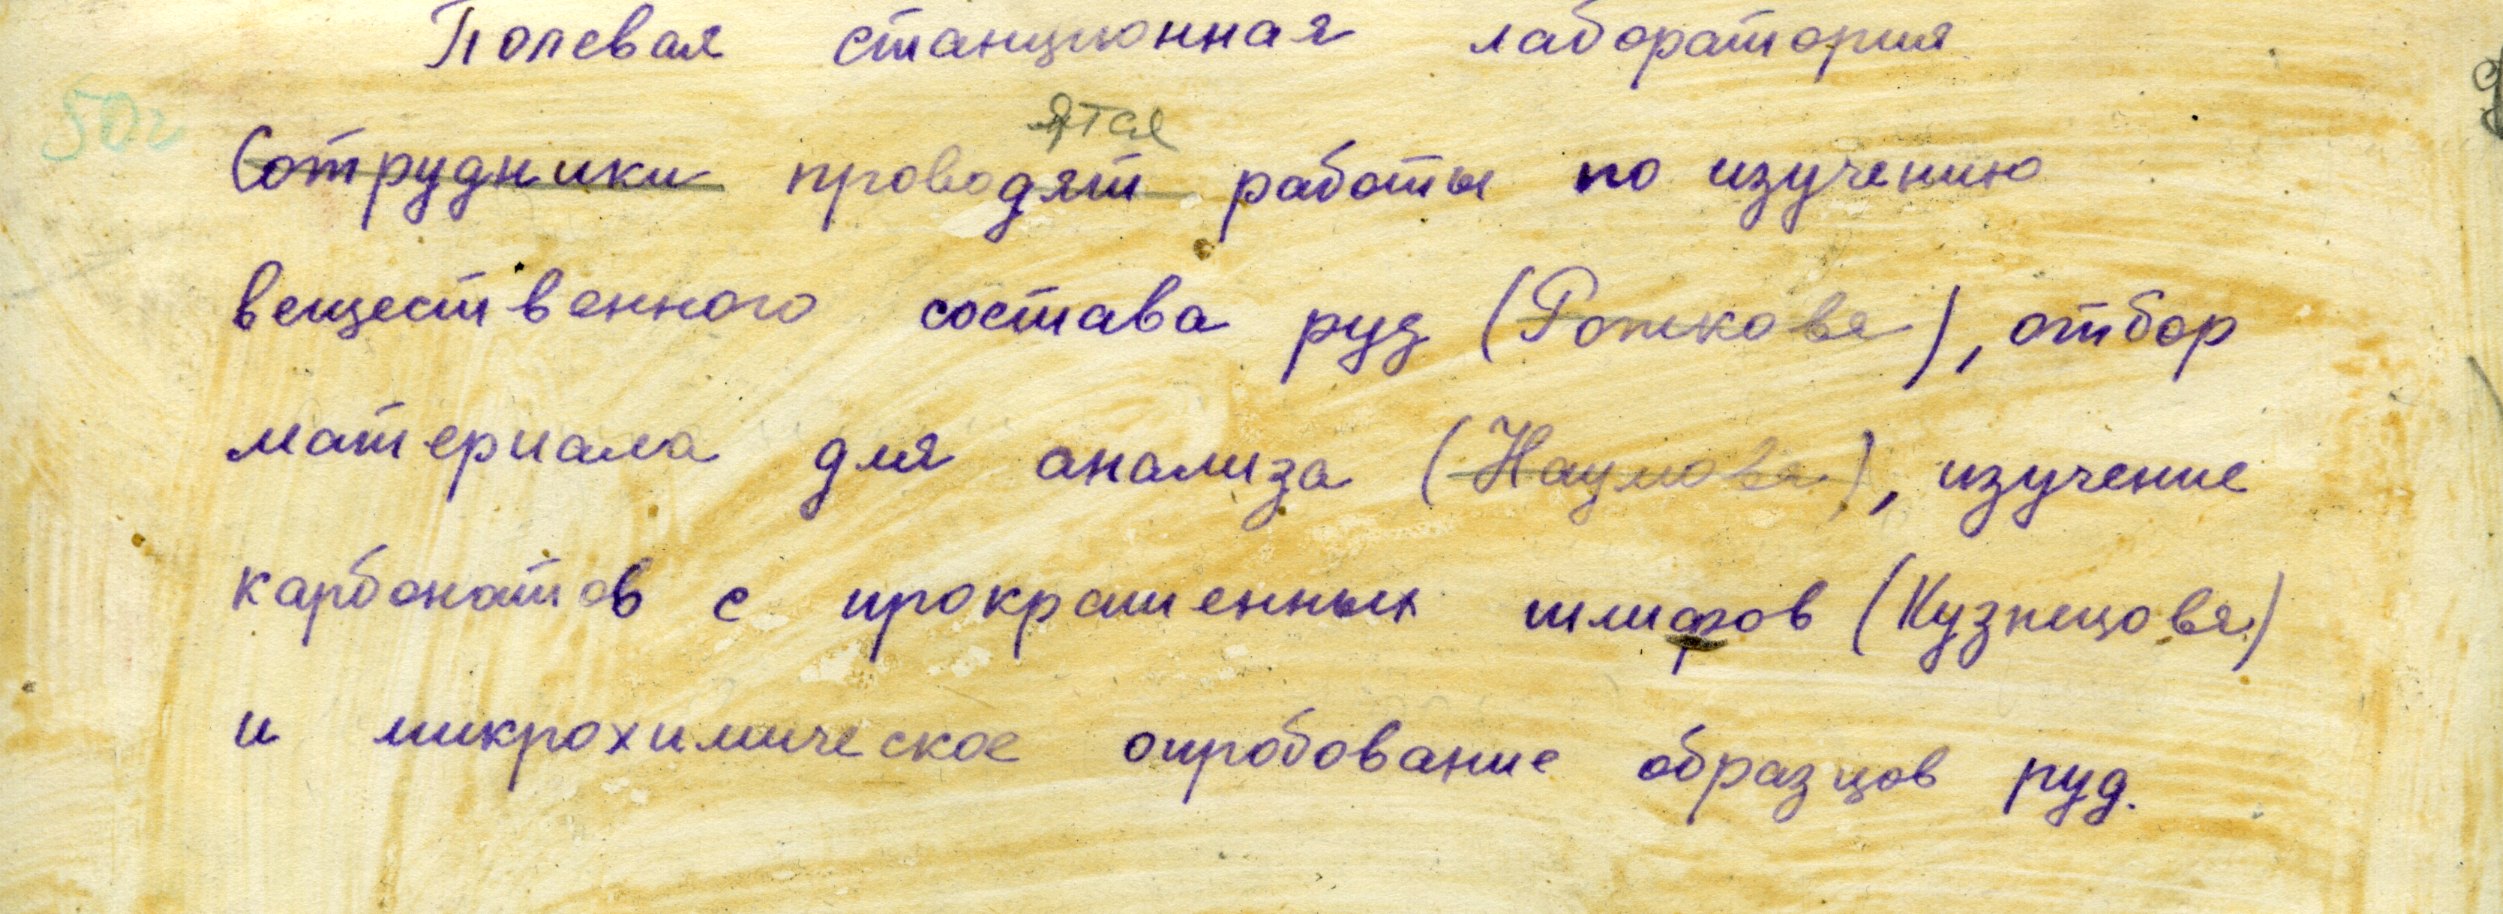 Полевая станционная лаборатория
50г
ятся
Сотрудники проводят работы по изучению
вещественного состава руд (Рожкова), отбор
материала для анализа (Наумова), изучение
карбонатов с прокрашенных шлифов (Кузнецова)
и микрохимическое опробование образцов руд.